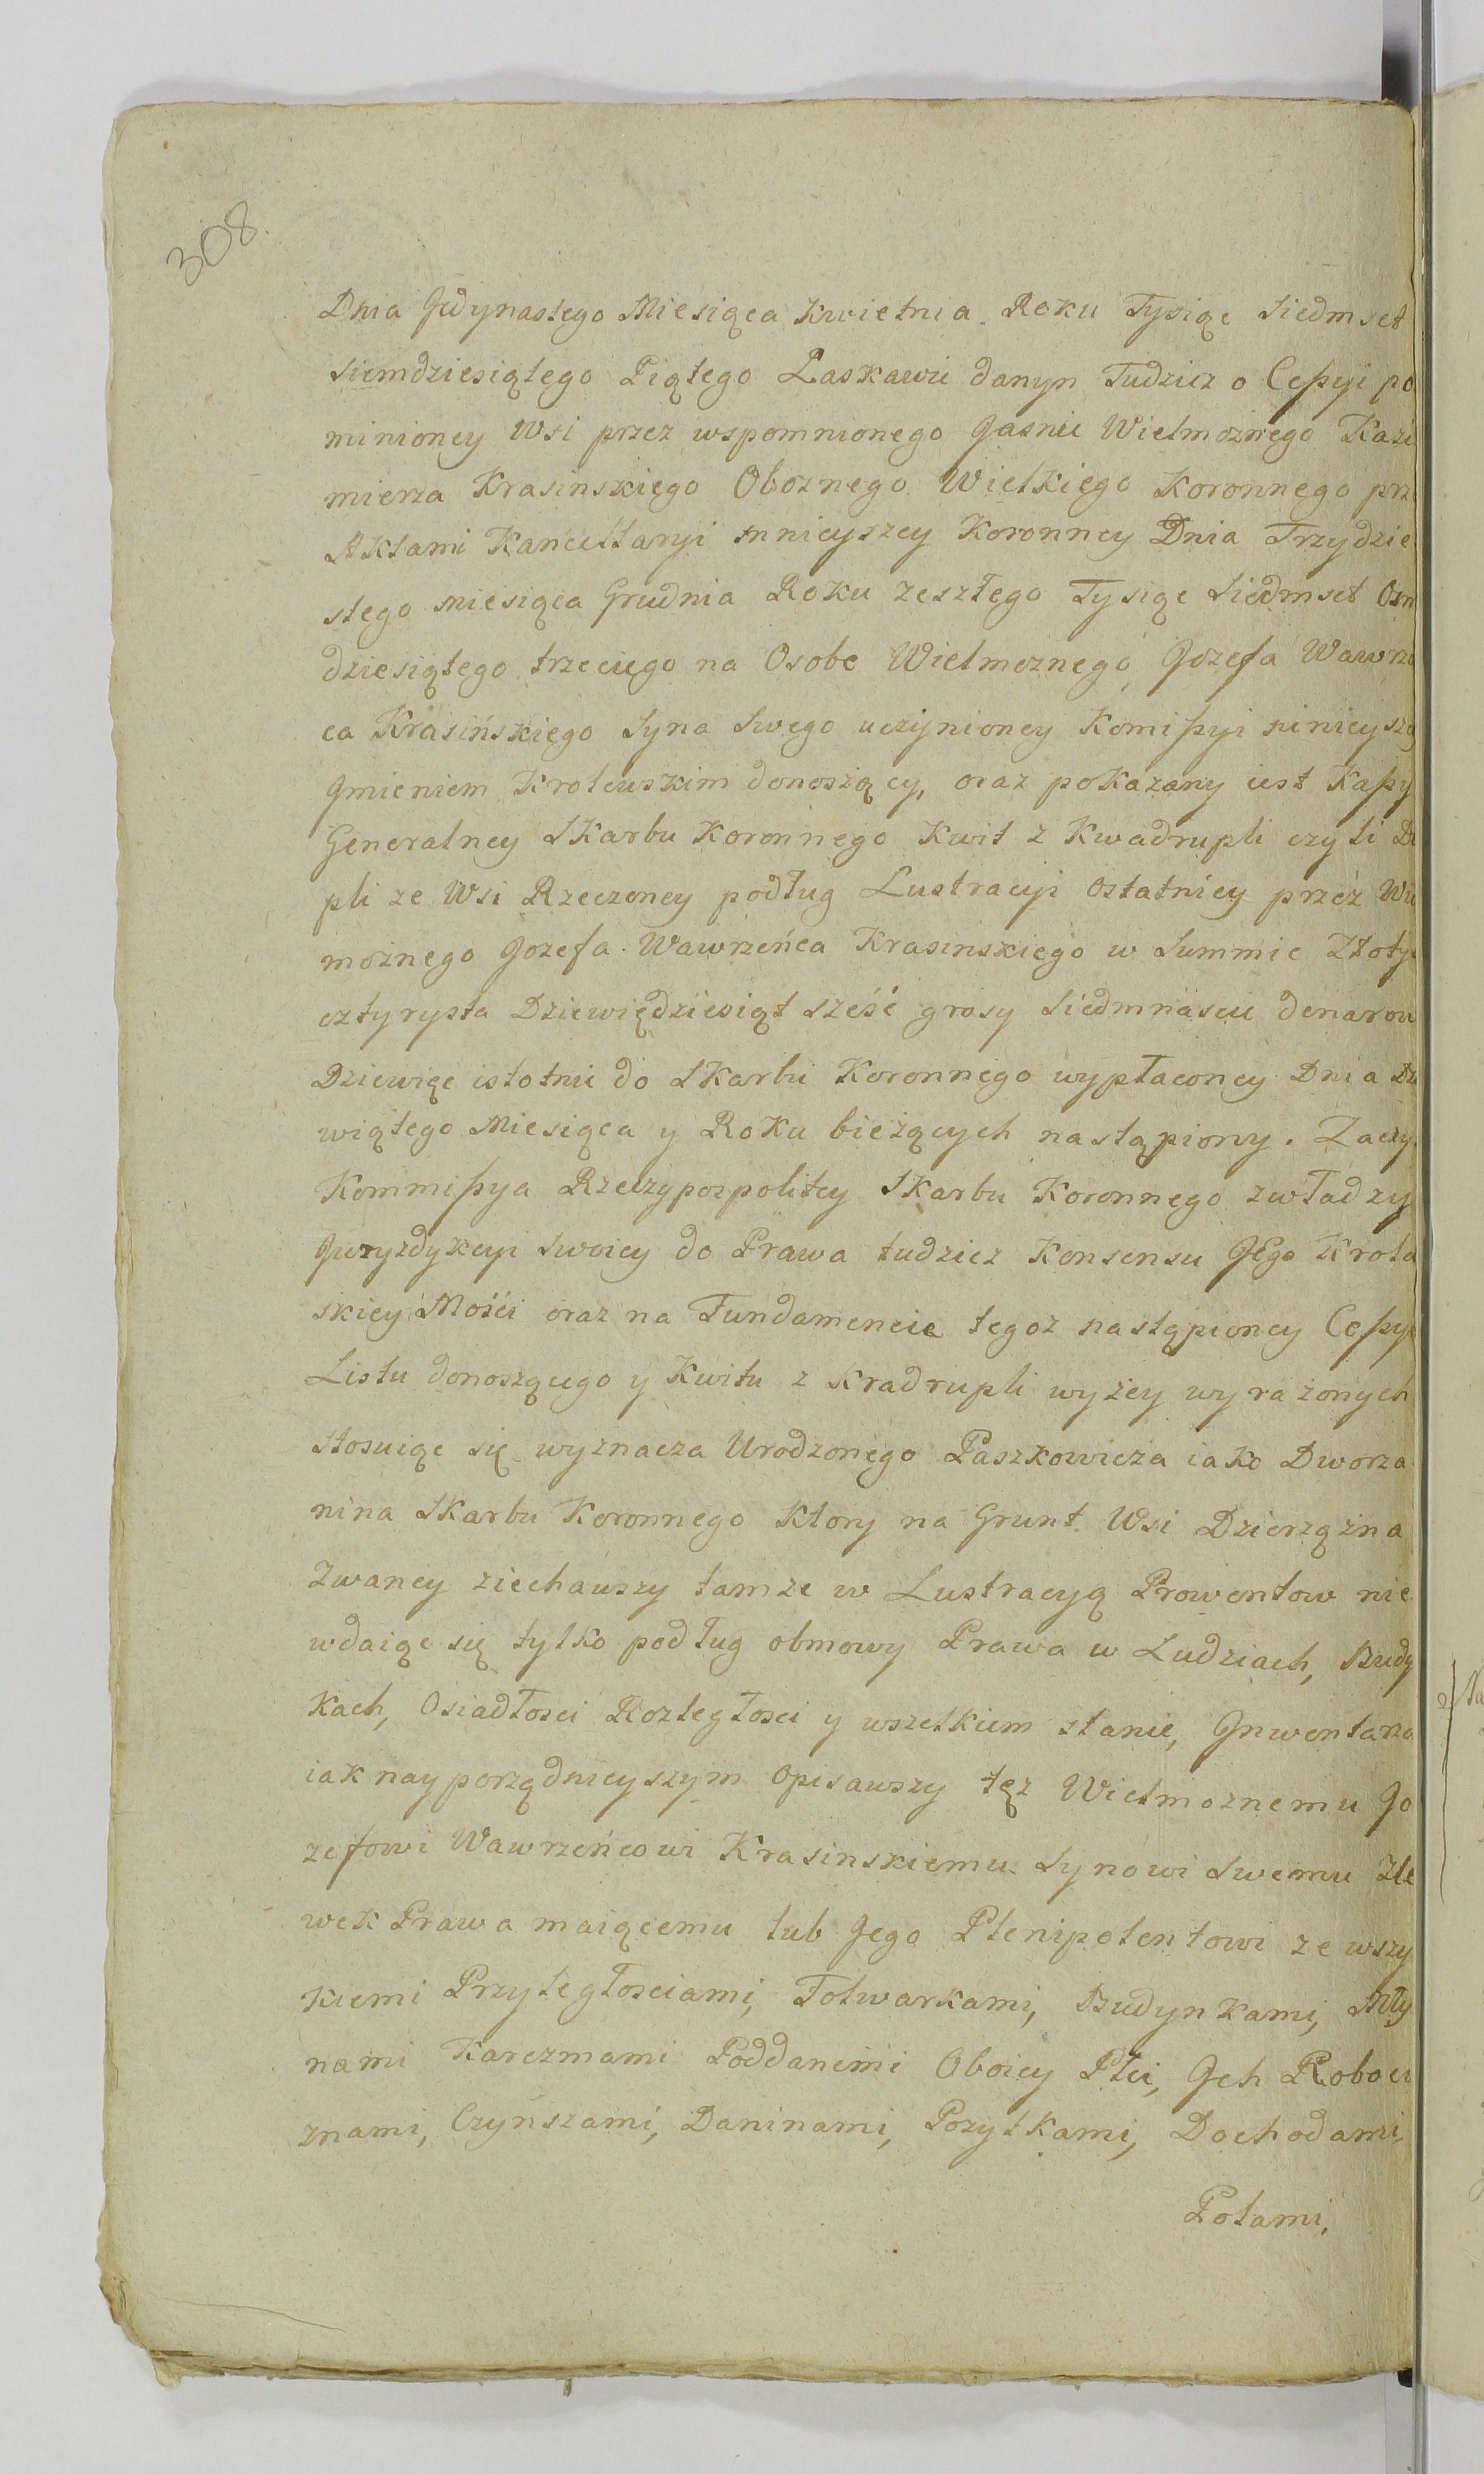 308.
Dnia Jedynastego Miesiąca Kwietnia Roku Tysiąc Siedmset
Siemdziesiątego Piątego Łaskawie danyn Tudziez o Ceßyi po
minioney Wsi przez wspomnionego Jasnie Wielmoznego Kazi
mierza Krasinskiego Oboznego Wielkiego Koronnego prze
Aktami Kancellaryi mnieyszey Koronney Dnia Trzydzie
stego Miesiąca Grudnia Roku zeszłego Tysiąc Siedmset Osm
dziesiątego trzeciego na Osobe Wielmoznego Jozefa Wawrze
ca Krasińskiego Syna Swego uczynioney Komißyi ninieyszą
Jmieniem Krolewskim donoszący, oraz pokazany iest Kaßy
Generalney Skarbu Koronnego Kwit z Kwadrupli czyli Du
pli ze Wsi Rzeczoney podług Lustracyi Ostatniey przez Wie
możnego Jozefa Wawrzeńca Krasinskiego w Summie Złoty
cztyrysta Dziewiędziesiąt sześć grosy Siedmnascie denarow
Dziewięc istotnie do Skarbu Koronnego wypłaconey Dnia Dzi
wiątego Miesiąca y Roku bieżących nastąpiony. Zaczy
Kommißya Rzeczypospolitey Skarbu Koronnego z władzy
Juryzdykcyi Swoiey do Prawa tudziez Konsensu JEgo Krole
skiey Mości oraz na Fundamencie tegoz nastąpioney Ceßyi
Listu donoszącego y Kwitu z Kradrupli wyżey wyrażonych
stosuiąc się wyznacza Urodzonego Paszkowicza iako Dworza
nina Skarbu Koronnego Ktory na Grunt Wsi Dzierzązna
Zwaney ziechawszy tamze w Lustracyą Prowentow nie
wdaiąc się tylko podług obmowy Prawa w Ludziach, Budy
Kach, Osiadłosci Rozległosci y wszelkiem stanie, Jnwentarza
iak nayporządnieyszym Opisawszy tęz Wielmoznemu Jo
zefowi Wawrzeńcowi Krasinskiemu Synowi Swemu Zle
wek Prawa maiącemu lub Jego Plenipotentowi ze wszy
kiemi Przyległosciami, Folwarkami, Budynkami, Mły
nami Karczmami Poddanemi Oboiey Płci, Jch Roboci
znami, Czynszami, Daninami, Pożytkami, Dochodami,
Polami,